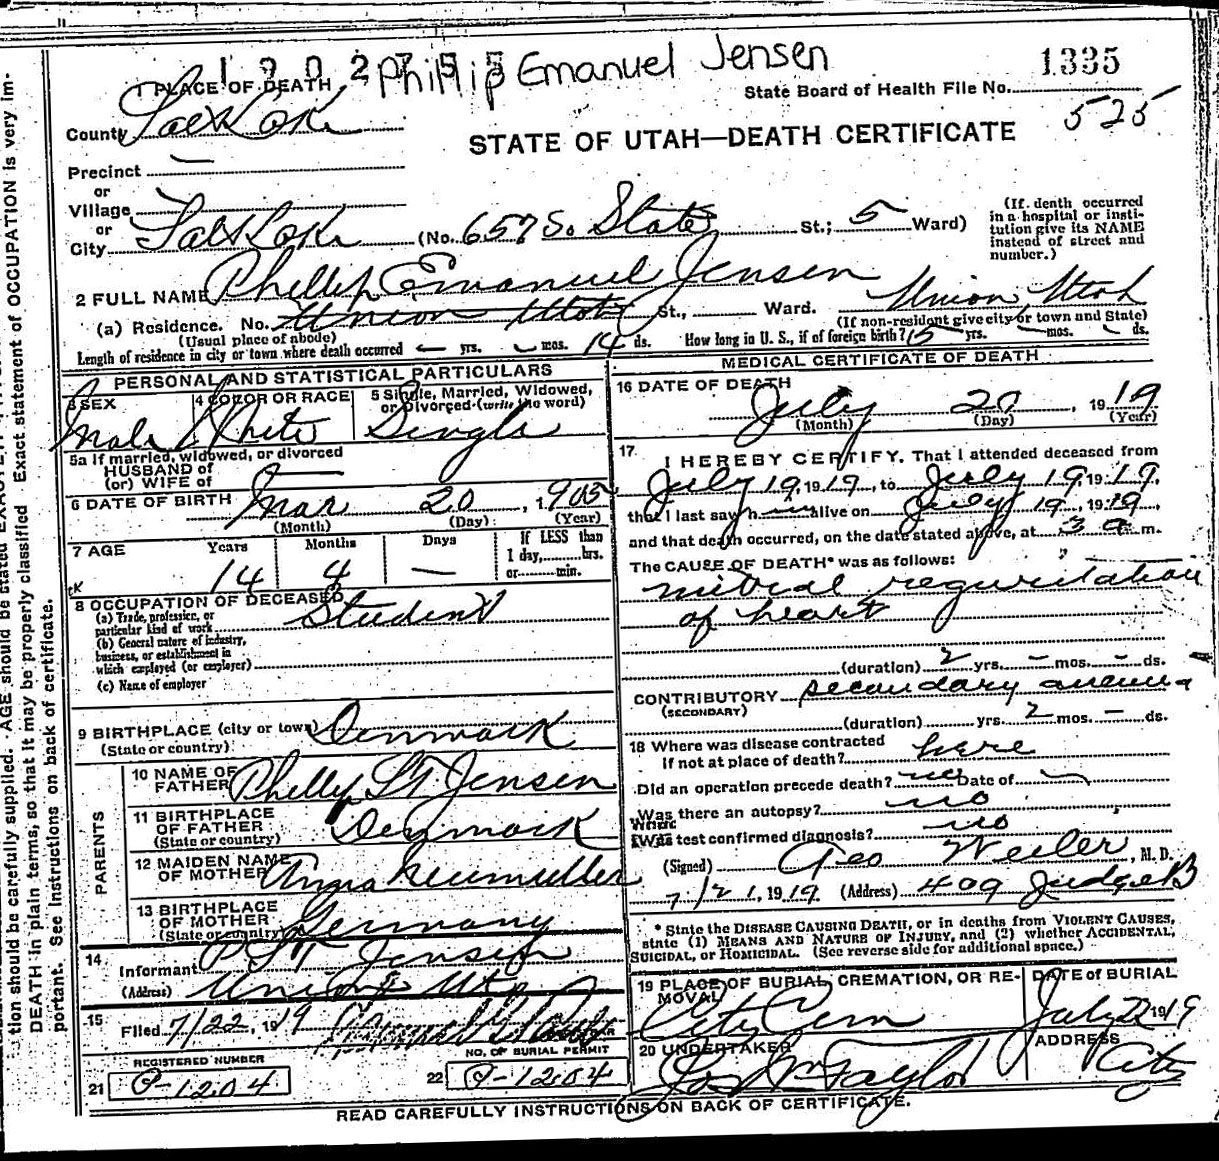 1902755 Phillip Emanuel Jensen
1335
1 PLACE OF DEATH
State Board of Health File No.
525
County Salt Lake
STATE OF UTAH—DEATH CERTIFICATE
Precinct —
or
Village
or
City Salt Lake (No. 657 So. State St.; 5 Ward)
(If death occurred in a hospital or institution give its NAME instead of street and number.)
2 FULL NAME Phillip Emanuel Jensen
(a) Residence. No. Union Utah St., Ward. Union, Utah
(Usual place of abode) (If non-resident give city or town and State)
Length of residence in city or town where death occurred — yrs. — mos. 14 ds. How long in U. S., if of foreign birth? yrs. — mos. — ds.
PERSONAL AND STATISTICAL PARTICULARS
3 SEX Male
4 COLOR OR RACE White
5 Single, Married, Widowed, or Divorced (write the word) Single
5a If married, widowed, or divorced
HUSBAND of
(or) WIFE of —
6 DATE OF BIRTH Mar 20, 1905
(Month) (Day) (Year)
7 AGE Years 14 Months 4 Days — If LESS than 1 day, hrs. or min.
8 OCCUPATION OF DECEASED
(a) Trade, profession, or particular kind of work Student
(b) General nature of industry, business, or establishment in which employed (or employer)
(c) Name of employer
9 BIRTHPLACE (city or town) Denmark
(State or country)
PARENTS
10 NAME OF FATHER Jensen
11 BIRTHPLACE OF FATHER Denmark
(State or country)
12 MAIDEN NAME OF MOTHER Anna Neumuller
13 BIRTHPLACE OF MOTHER Germany
(State or country)
14 Informant Jensen
(Address) Union Utah
15 Filed 7/22, 1919
REGISTERED NUMBER
21 O-1204
NO. OF BURIAL PERMIT
22 O-1204
MEDICAL CERTIFICATE OF DEATH
16 DATE OF DEATH
July 20, 1919
(Month) (Day) (Year)
17 I HEREBY CERTIFY, That I attended deceased from
July 19, 1919, to July 19, 1919,
that I last saw him alive on July 19, 1919,
and that death occurred, on the date stated above, at 3 a m.
The CAUSE OF DEATH* was as follows:
mitral regurgitation
of heart
(duration) 2 yrs. — mos. — ds.
CONTRIBUTORY secondary anemia
(SECONDARY)
(duration) yrs. 2 mos. — ds.
18 Where was disease contracted
if not at place of death? here
Did an operation precede death? no Date of —
Was there an autopsy? no
What test confirmed diagnosis? no
(Signed) Geo Weiler, M. D.
7/21, 1919 (Address) 409 Judge B
* State the DISEASE CAUSING DEATH, or in deaths from VIOLENT CAUSES, state (1) MEANS AND NATURE OF INJURY, and (2) whether ACCIDENTAL, SUICIDAL, or HOMICIDAL. (See reverse side for additional space.)
19 PLACE OF BURIAL, CREMATION, OR REMOVAL City Cem
DATE of BURIAL July 22 1919
20 UNDERTAKER Jos Wm Taylor
ADDRESS City
READ CAREFULLY INSTRUCTIONS ON BACK OF CERTIFICATE.
tion should be carefully supplied. AGE should be stated
DEATH in plain terms, so that it may be properly classified. Exact statement of OCCUPATION is very im-
portant. See instructions on back of certificate.